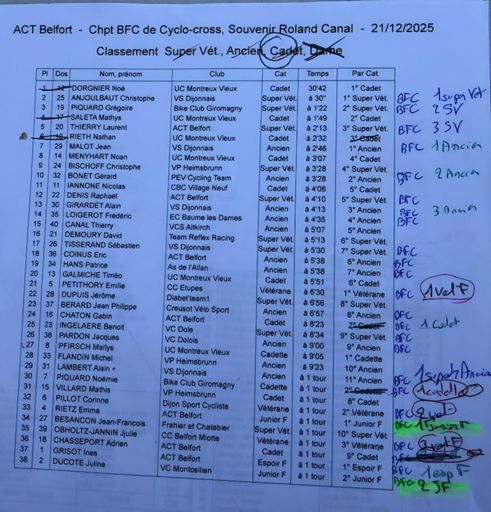 ACT Belfort - Chpt BFC de Cyclo-cross, Souvenir Roland Canal - 21/12/2025
Classement Super Vét., Ancien, Cadet, Dame
Pl Dos Nom, prénom Club Cat Temps Par Cat.
1 12 DORGNIER Noé UC Montreux Vieux Cadet 30'42 1° Cadet
2 25 ANJOULBAUT Christophe VS Dijonnais Super Vét. à 30" 1° Super Vét. BFC 1 super Vet
3 19 PIQUARD Grégoire Bike Club Giromagny Super Vét. à 1'22 2° Super Vét. BFC 2 SV
4 17 SALETA Mathys UC Montreux Vieux Cadet à 1'49 2° Cadet
5 20 THIERRY Laurent ACT Belfort Super Vét. à 2'13 3° Super Vét. BFC 3 SV
6 10 RIETH Nathan UC Montreux Vieux Cadet à 2'32 3° Cadet
7 29 MALOT Jean VS Dijonnais Ancien à 2'46 1° Ancien BFC 1 Ancien
8 14 MENYHART Noan UC Montreux Vieux Cadet à 3'07 4° Cadet
9 24 BISCHOFF Christophe VP Heimsbrunn Super Vét. à 3'28 4° Super Vét.
10 32 BONET Gérard PEV Cycling Team Ancien à 3'28 2° Ancien BFC 2 Ancien
11 11 IANNONE Nicolas CBC Village Neuf Cadet à 4'08 5° Cadet
12 22 DENIS Raphaël ACT Belfort Super Vét. à 4'10 5° Super Vét. BFC
13 30 GIRARDET Alain VS Dijonnais Ancien à 4'13 3° Ancien BFC 3 Ancien
14 35 LOIGEROT Frédéric EC Baume les Dames Ancien à 4'35 4° Ancien BFC
15 40 CANAL Thierry VCS Altkirch Ancien à 5'07 5° Ancien
16 21 DEMOURY David Team Reflex Racing Super Vét. à 5'13 6° Super Vét.
17 26 TISSERAND Sébastien VS Dijonnais Super Vét. à 5'30 7° Super Vét. BFC
18 36 COINUS Eric ACT Belfort Ancien à 5'38 6° Ancien BFC
19 34 HANS Patrice As de l'Allan Ancien à 5'38 7° Ancien BFC
20 13 GALMICHE Timéo UC Montreux Vieux Cadet à 5'51 6° Cadet
21 5 PETITHORY Emilie CC Etupes Vétérane à 6'30 1° Vétérane BFC 1 Vet F
22 28 DUPUIS Jérôme Diabet'team1 Super Vét. à 6'56 8° Super Vét.
23 37 BERARD Jean Philippe Creusot Vélo Sport Ancien à 6'57 8° Ancien BFC
24 16 CHATON Gabin ACT Belfort Cadet à 8'23 7° Cadet BFC 1 Cadet
25 23 INGELAERE Benoit VC Dole Super Vét. à 8'34 9° Super Vét. BFC
26 38 PARDON Jacques VC Dole Ancien à 9'00 9° Ancien BFC
27 8 PFIRSCH Mallys UC Montreux Vieux Cadette à 9'05 1° Cadette
28 33 FLANDIN Michel VP Heimsbrunn Ancien à 9'23 10° Ancien
29 31 LAMBERT Alain VS Dijonnais Ancien à 1 tour 11° Ancien BFC
30 7 PIQUARD Noémie Bike Club Giromagny Cadette à 1 tour 2° Cadette BFC 1 cadette
31 15 VILLARD Mathis VP Heimsbrunn Cadet à 1 tour 8° Cadet
32 6 PILLOT Corinne Dijon Sport Cycliste Vétérane à 1 tour 2° Vétérane BFC 2 vet
33 4 RIETZ Emma ACT Belfort Junior F à 1 tour 1° Junior F BFC 1 Junior F
34 27 BESANCON Jean-Francois Frahier et Chatebier Super Vét. à 1 tour 10° Super Vét. BFC
35 39 OBHOLTZ-JANNIN Jjulie CC Belfort Miotte Vétérane à 1 tour 3° Vétérane BFC 3 vet F
36 18 CHASSEPORT Adrien ACT Belfort Cadet à 1 tour 9° Cadet BFC
37 1 GRISOT Ines ACT Belfort Espoir F à 1 tour 1° Espoir F BFC 1 esp F
38 2 DUCOTE Juline VC Montcellien Junior F à 1 tour 2° Junior F BFC 2 JF